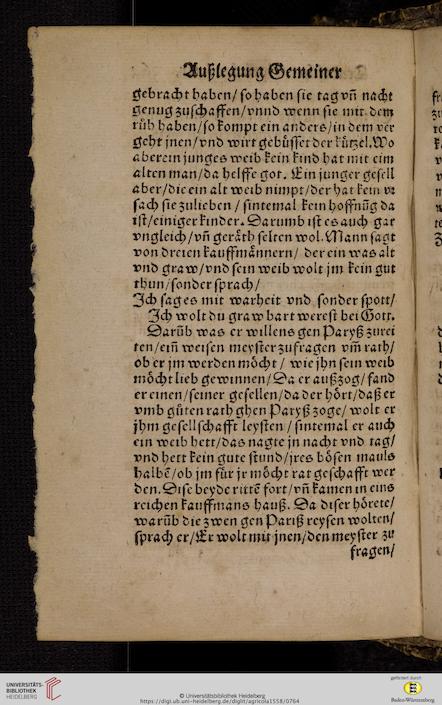 Außlegung Gemeiner
gebracht haben/ so haben sie tag vñ nacht
genug zuschaffen/ vnnd wenn sie mit dem
rüb haben/ so kompt ein anders/ in dem ver
geht jnen/ vnd wirt gebüsset der kützel. Wo
aber ein junges weib kein kind hat mit eim
alten man/ da helffe got. Ein junger gesell
aber/ die ein alt weib nimpt/ der hat kein vr
sach sie zulieben / sintemal kein hoffnũg da
ist/ einiger kinder. Darumb ist es auch gar
vngleich/ vñ geräth selten wol. Mann sagt
von dreien kauffmännern/ der ein was alt
vnd graw/ vnd sein weib wolt jm kein gut
thun/ sonder sprach/
Ich sag es mit warheit vnd sonder spott/
Ich wolt du graw bart werest bei Gott.
Darüb was er willens gen Paryß zurei
ten/ eiñ weisen meyster zufragen vm̃ rath/
ob er jm werden möcht / wie jhn sein weib
möcht lieb gewinnen/ Da er außzog/ fand
er einen/ seiner gesellen/ da der hört/ daß er
vmb gůten rath ghen Paryß zoge/ wolt er
jhm gesellschafft leysten / sintemal er auch
ein weib hett/ das nagte jn nacht vnd tag/
vnd hett kein gute stund/ jres bösen mauls
halbẽ/ ob jm für jr möcht rat geschafft wer
den. Dise beyde rittẽ fort/ vñ kamen in eins
reichen kauffmans hauß. Da diser hörete/
warũb die zwen gen Pariß reysen wolten/
sprach er/ Er wolt mit jnen/ den meyster zu
fragen/
UNIVERSITÄTS-
BIBLIOTHEK
HEIDELBERG
© Universitätsbibliothek Heidelberg
https://digi.ub.uni-heidelberg.de/diglit/agricola1558/0764
gefördert durch
Baden-Württemberg